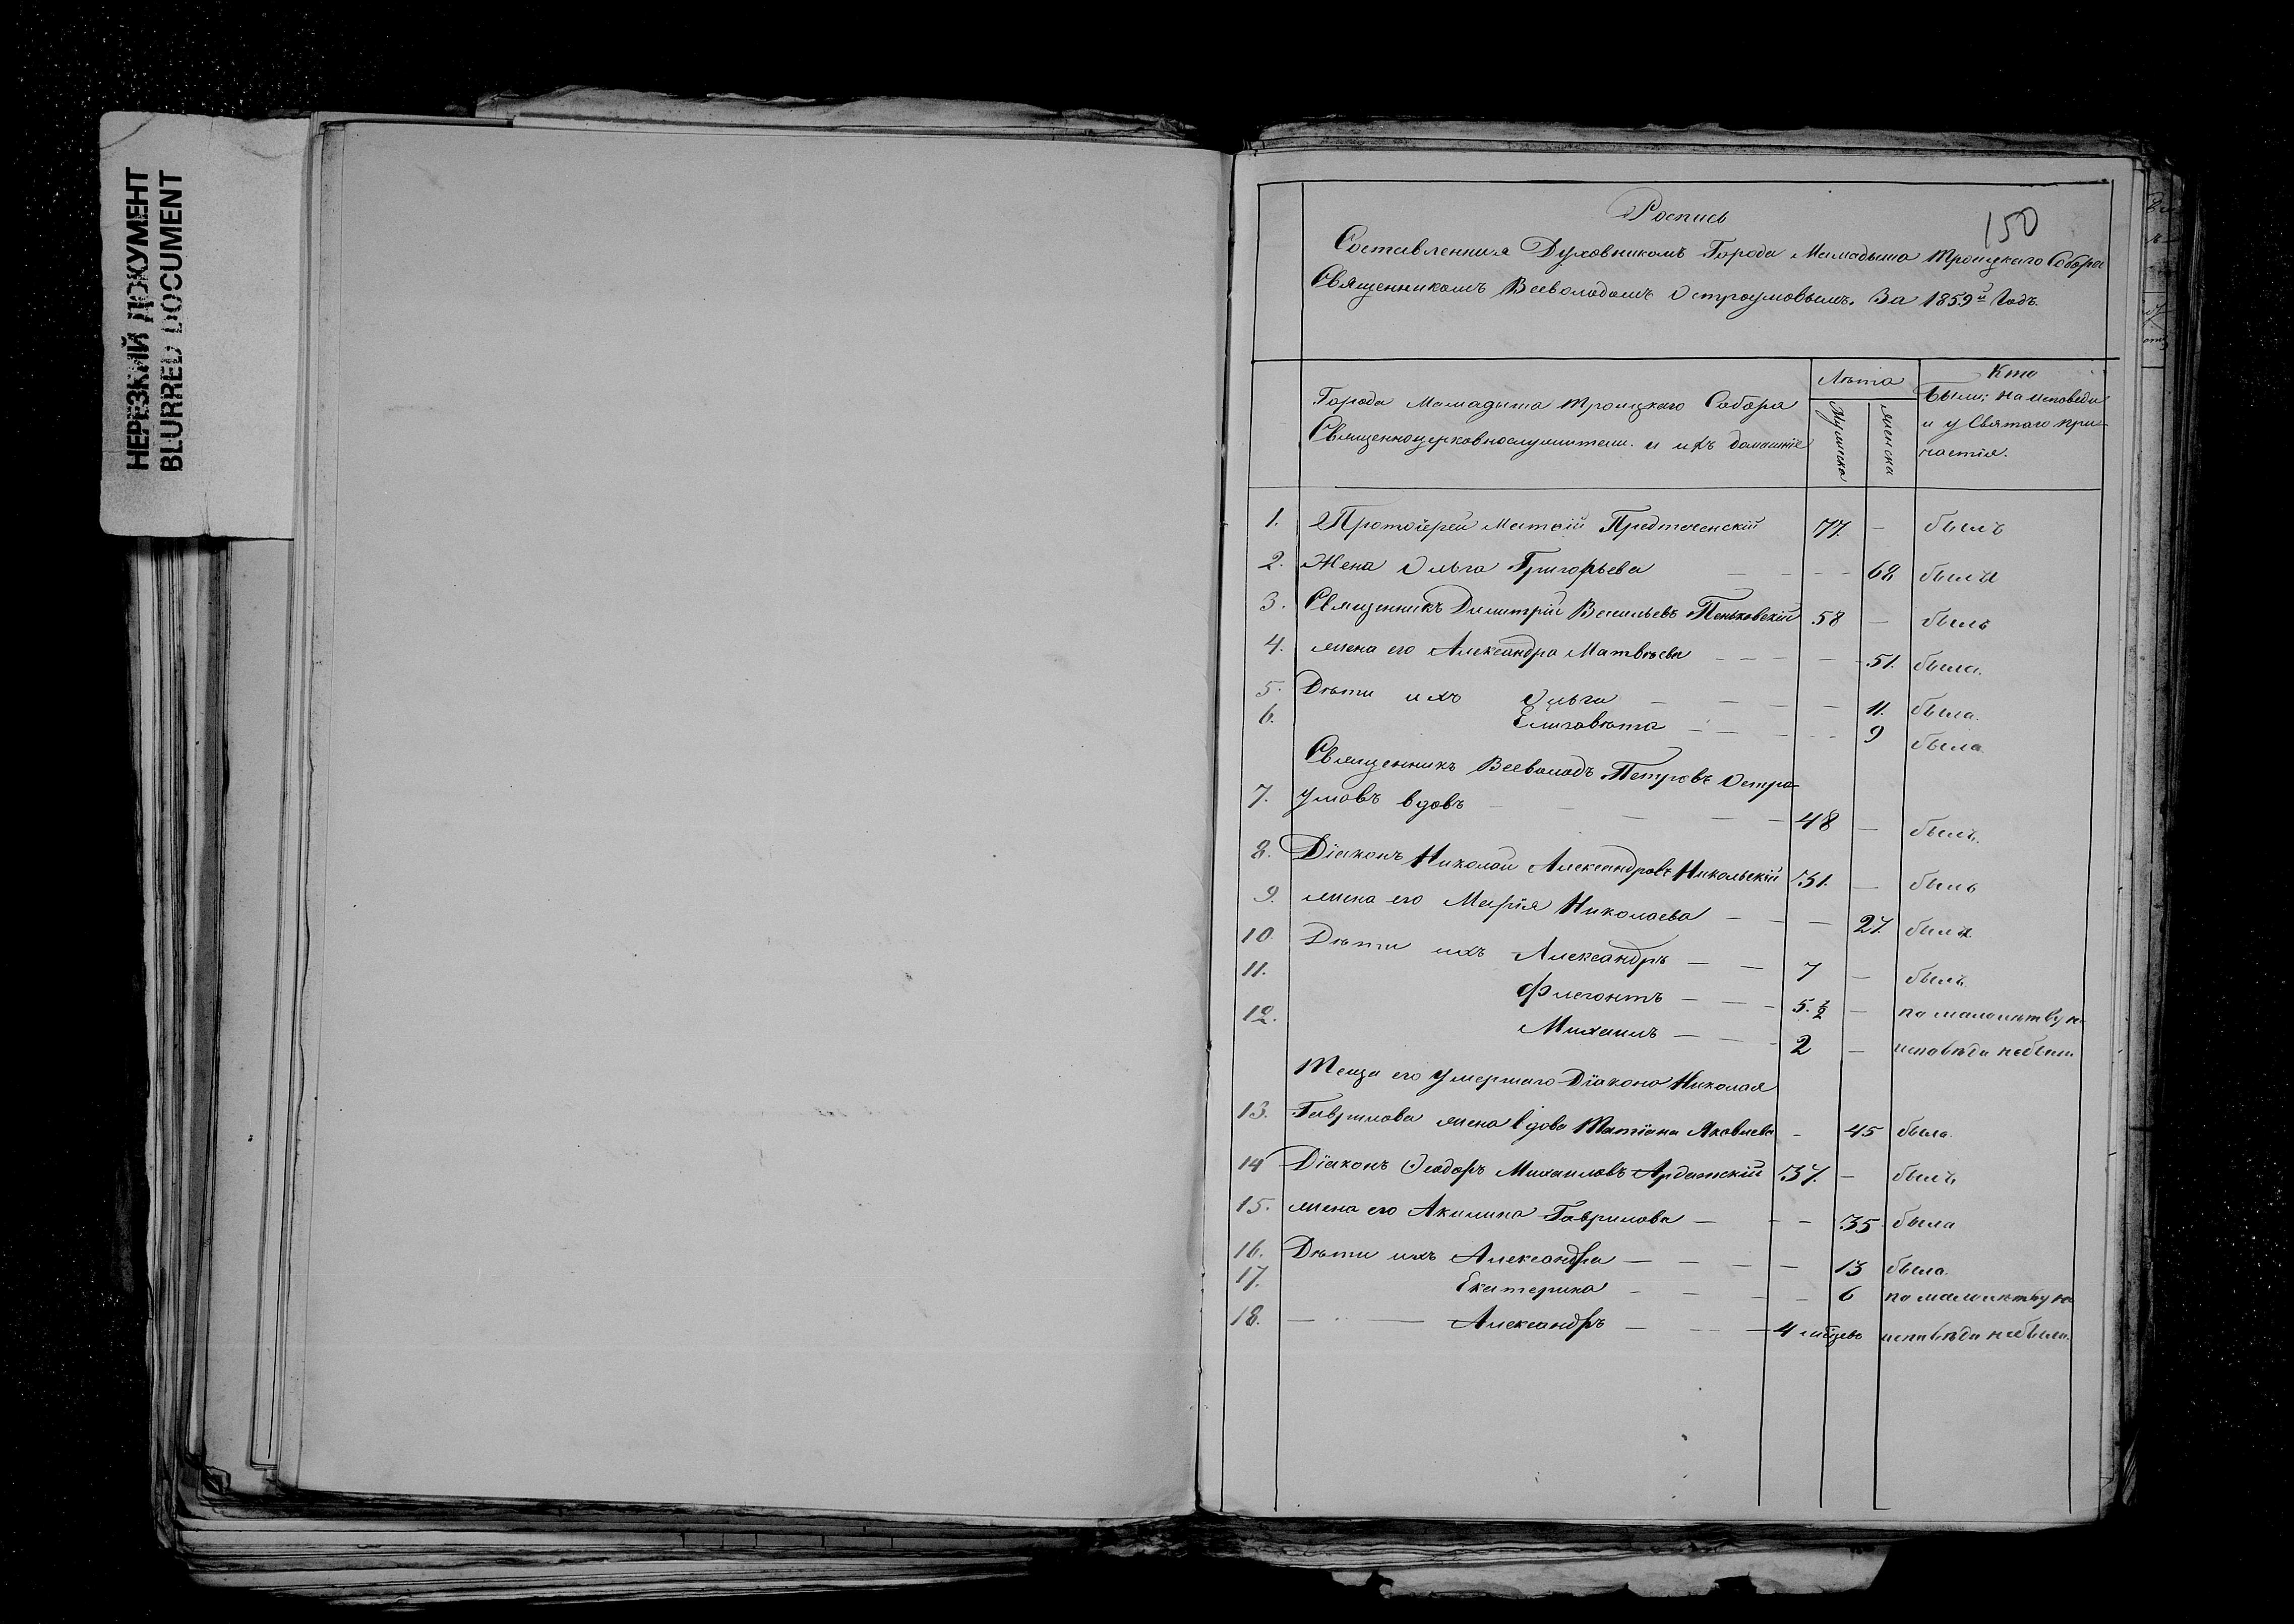 НЕРЕЗКИЙ ДОКУМЕНТ
BLURRED DOCUMENT
150
Роспись
Составленная Духовникомъ Города Мамадыша Троицкаго Собора
Священникомъ Всеволодомъ Остроумовымъ. За 1859й Годъ.
Города Мамадыша Троицкаго Собора
Священноцерковнослужители и ихъ домашніе
Лѣта
Мужеска
женска
Кто
Были; на исповеди
и у Святаго при-
частія.
1. Протоіерей Матѳій Предтеченскій 77. — былъ
2. Жена Ольга Григорьева — — — 68 была
3. Священникъ Димитрій Васильевъ Пеньковскій 58 — былъ
4. жена его Александра Матвѣева — — — 51. была.
5. Дѣти ихъ Ольга — — — — 11. была.
6. Елизавѣта — — — — 9 была
Священникъ Всеволодъ Петровъ Остро-
7. умовъ вдовъ — — — — 48 — былъ.
8. Діаконъ Николай Александровъ Никольскій 31. — былъ
9. жена его Марія Николаева — — — 27. была
10. Дѣти ихъ Александръ — — 7 — былъ
11. Флегонтъ — — — 5.½ — по малолѣтву на
12. Михаилъ — — — 2 — исповѣди небыли
Теща его умершаго Діакона Николая
13. Гаврилова жена вдова Татіана Яковлева — 45 была.
14 Діаконъ Ѳеодоръ Михаиловъ Ардатскій 37. — былъ
15. жена его Акилина Гаврилова — — — 35 была
16. Дѣти ихъ Александра — — — — 13 была.
17. Екатерина — — — 6 по малолѣтву на
18. — — Александръ — — — 4 мѣсцевъ исповѣди небыли.